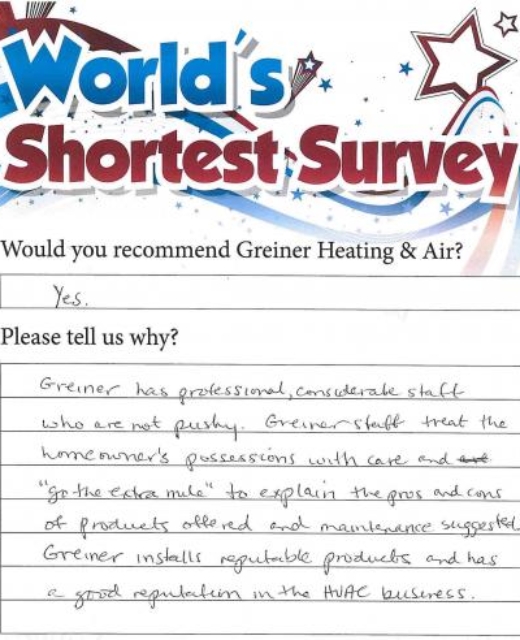 World's
Shortest Survey
Would you recommend Greiner Heating & Air?
Yes.
Please tell us why?
Greiner has professional, considerate staff
who are not pushy. Greiner staff treat the
homeowner's possessions with care and
"go the extra mile" to explain the pros and cons
of products offered and maintenance suggested
Greiner installs reputable products and has
a good reputation in the HVAC business.